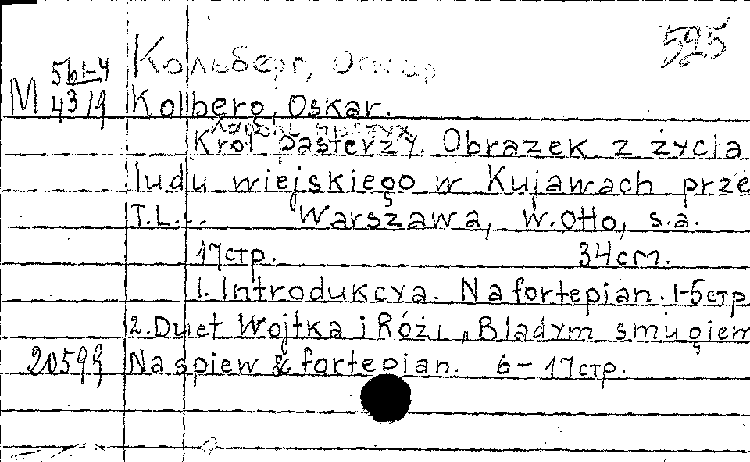 595
Кольберг, Оскар
M 561-4
43/9 Kolberg, Oskar.
Król pasterzy. Obrazek z życia
ludu wiejskiego w Kujawach prze
T.L... Warszawa, W. Otto, s.a.
17 стр. 34 cm.
1. Introdukcya. Na fortepian. 1-5 стр
2. Duet Wojtka i Róźi „Bladym smugiem
Na spiew & fortepian. 6-17 стр.